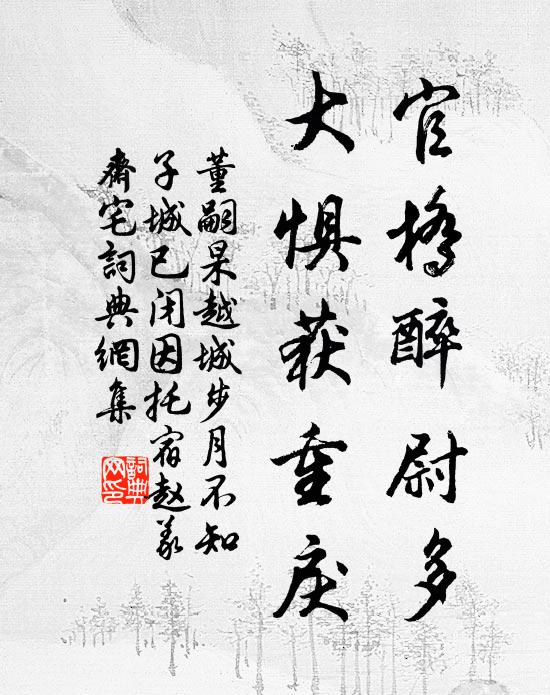 官橋醉尉多
大惧获重戾
董嗣杲越城步月不知
子城已闭因托宿赵義
齋宅詞典網集
詞典
网印